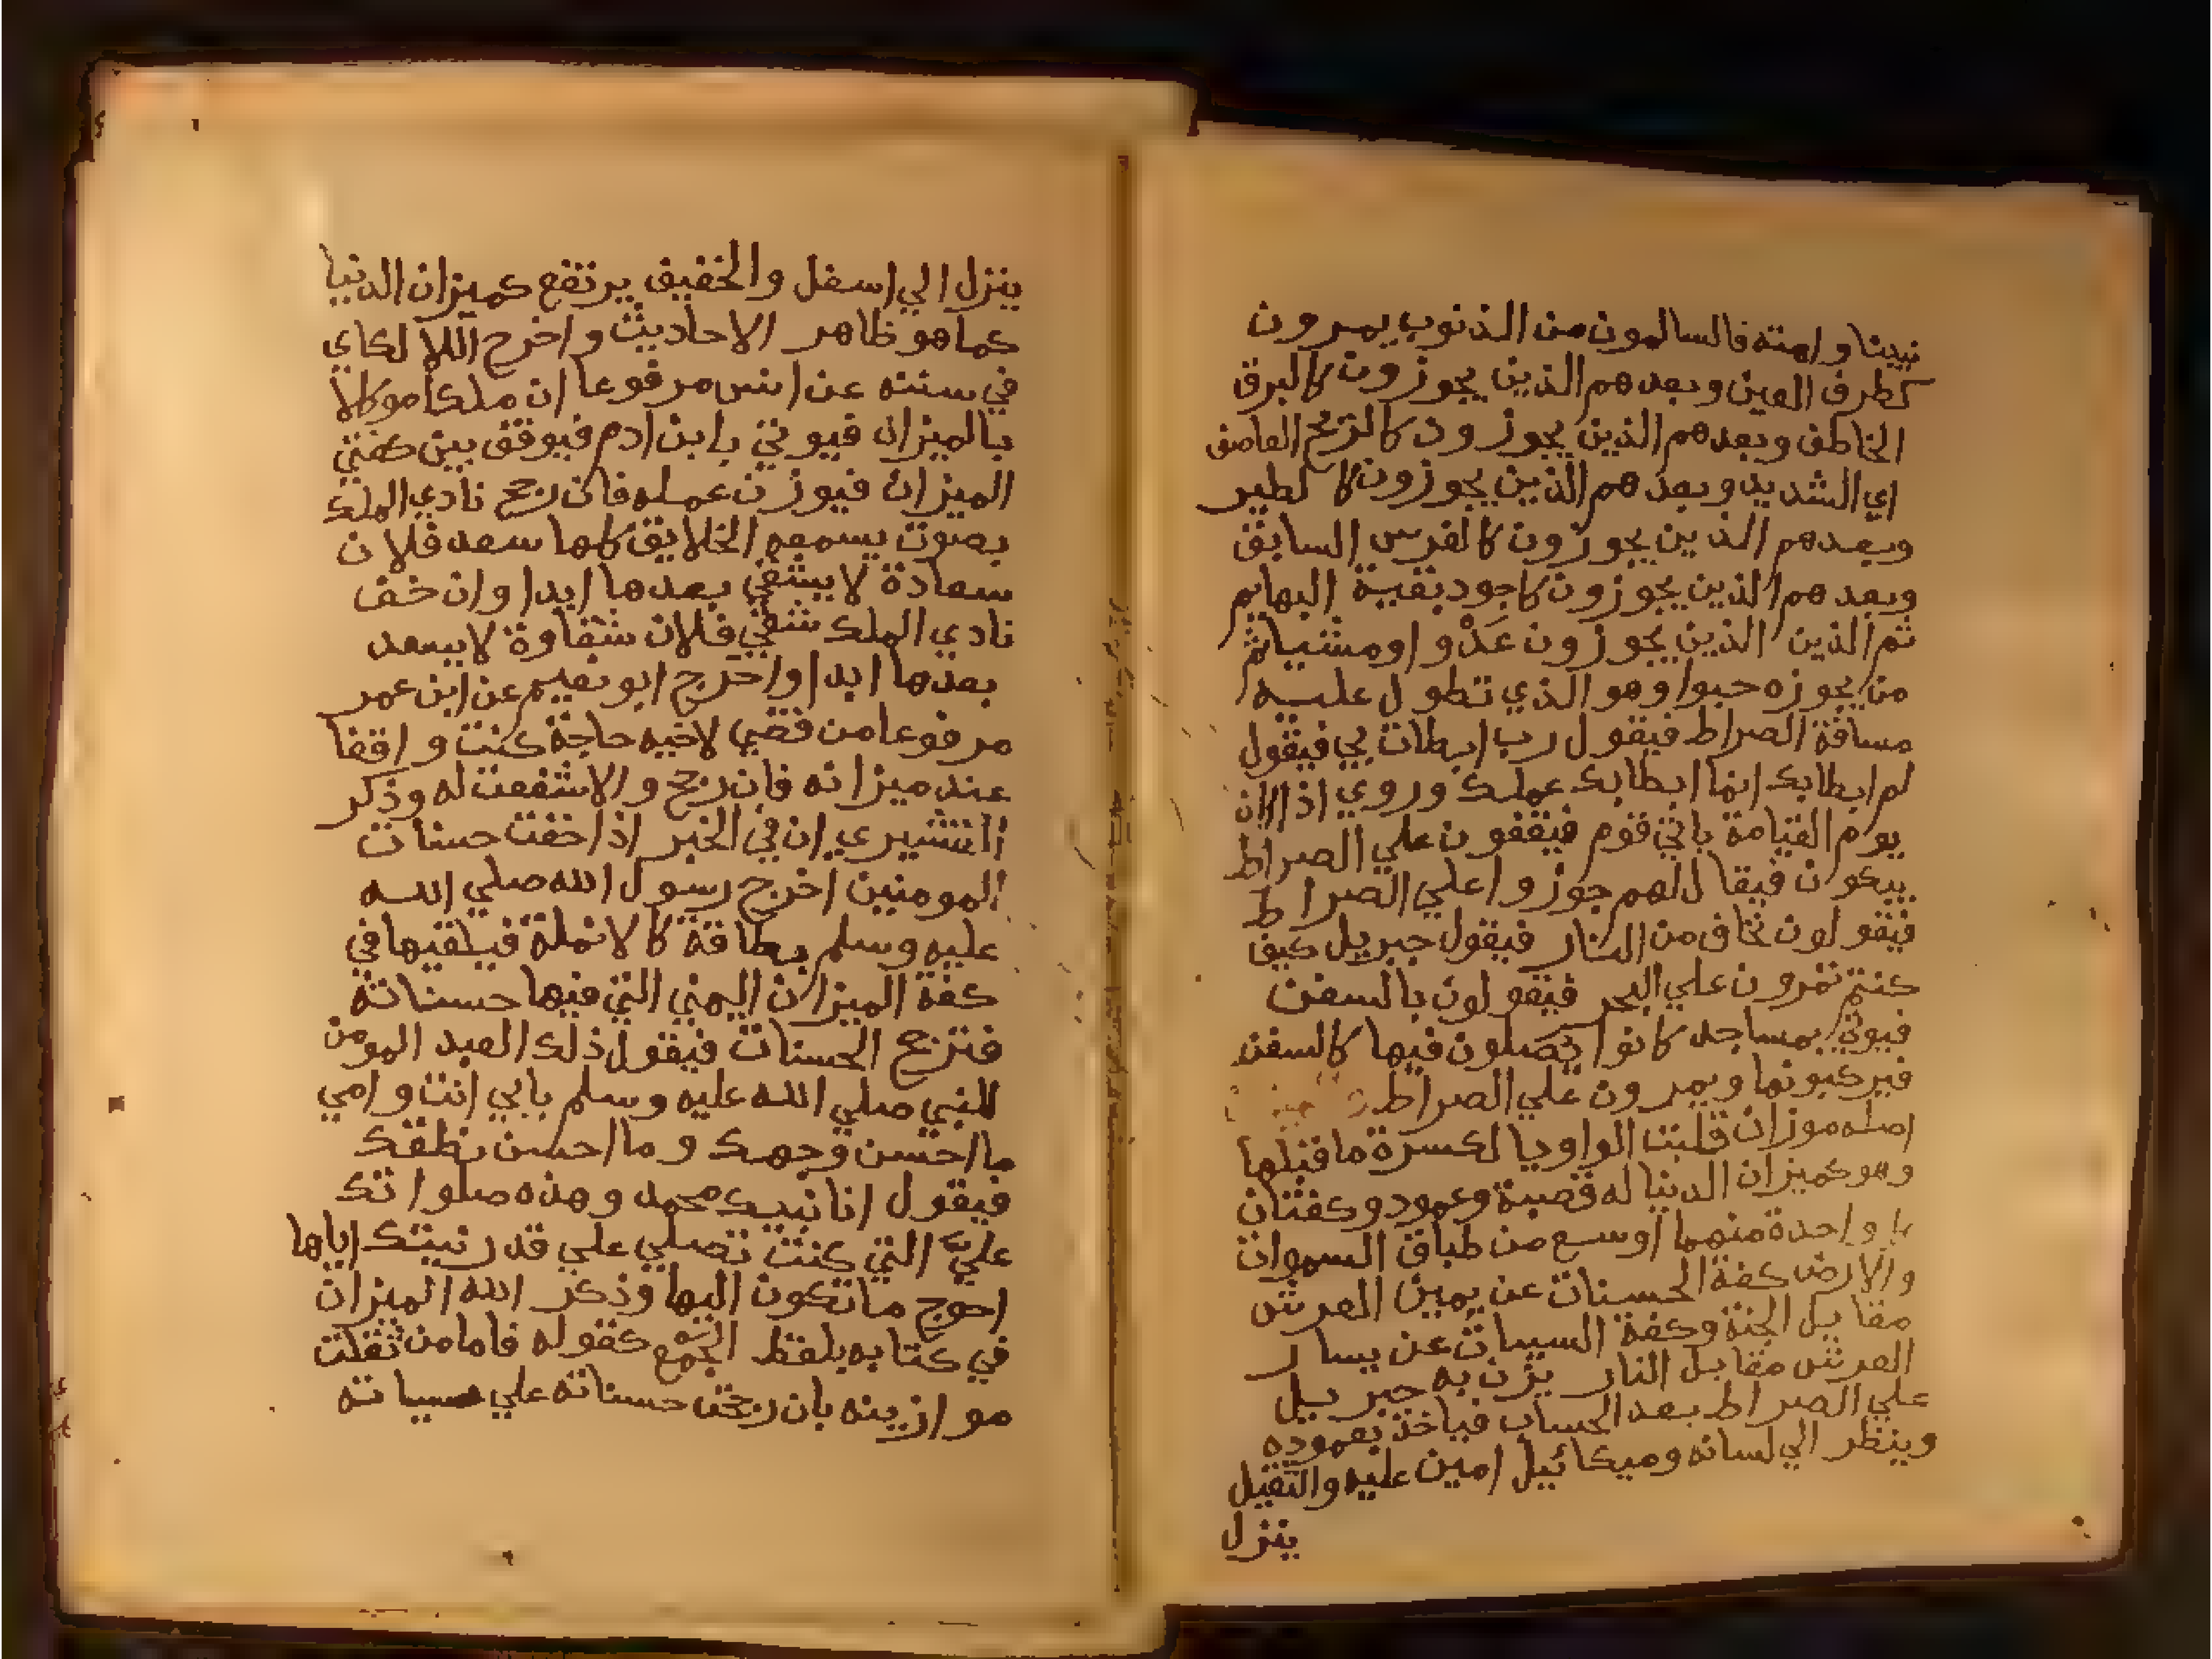 نبينا وامته فالسالمون من الذنوب يمرون
كطرف العين وبعدهم الذين يجوزون كالبرق
الخاطف وبعدهم الذين يجوزون كالريح العاصف
اي الشديد وبعدهم الذين يجوزون كالطير
وبعدهم الذين يجوزون كالفرس السابق
وبعدهم الذين يجوزون كاجود بقية البهايم
ثم الذين الذين يجوزون عَدْوا ومشيا ثم
من يجوزه حبوا وهو الذي تطول عليه
مسافة الصراط فيقول رب ابطات بي فيقول
لم ابطا بك انما ابطا بك عملك وروي اذا كان
يوم القيامة ياتي قوم فيقفون علي الصراط
يبكون فيقال لهم جوزوا علي الصراط
فيقولون نخاف من النار فيقول جبريل كيف
كنتم تمرون علي البحر فيقولون بالسفن
فيوتي بمساجد كانوا يصلون فيها كالسفن
فيركبونها ويمرون علي الصراط
اصله موزان قلبت الواو يا لكسرة ما قبلها
وهو كميزان الدنيا له قصبة وعمود وكفتان
واحدة منهما اوسع من طباق السموات
والارض كفة الحسنات عن يمين العرش
مقابل الجنة وكفة السيات عن يسار
العرش مقابل النار يزن به جبريل
علي الصراط بعد الحساب فياخذ بعموده
وينظر الي لسانه وميكائيل امين عليه والثقيل
ينزل
ينزل الي اسفل والخفيف يرتفع كميزان الدنيا
كما هو ظاهر الاحاديث واخرج اللالكاي
في سننه عن انس مرفوعا ان ملكا موكلا
بالميزان فيوتي بابن ادم فيوقف بين كفتي
الميزان فيوزن عمله فان رجح نادي الملك
بصوت يسمعه الخلايق كلها سعد فلان
سعادة لا يشقي بعدها ابدا وان خف
نادي الملك شقي فلان شقاوة لا يسعد
بعدها ابدا واخرج ابو نعيم عن ابن عمر
مرفوعا من قضي لاخيه حاجة كنت واقفا
عند ميزانه فان رجح والا شفعت له وذكر
القشيري ان في الخبر اذا خفت حسنات
المومنين اخرج رسول الله صلي الله
عليه وسلم بطاقة كالانملة فيلقيها في
كفة الميزان اليمني التي فيها حسناته
فترجح الحسنات فيقول ذلك العبد المومن
للنبي صلي الله عليه وسلم بابي انت وامي
ما احسن وجهك وما احسن نطقك
فيقول انا نبيك محمد وهذه صلواتك
عليّ التي كنت تصلي علي قد اياها
احوج ما تكون اليها وذكر الله الميزان
في كتابه بلفظ الجمع كقوله فاما من ثقلت
موازينه بان رجحت حسناته علي سياته